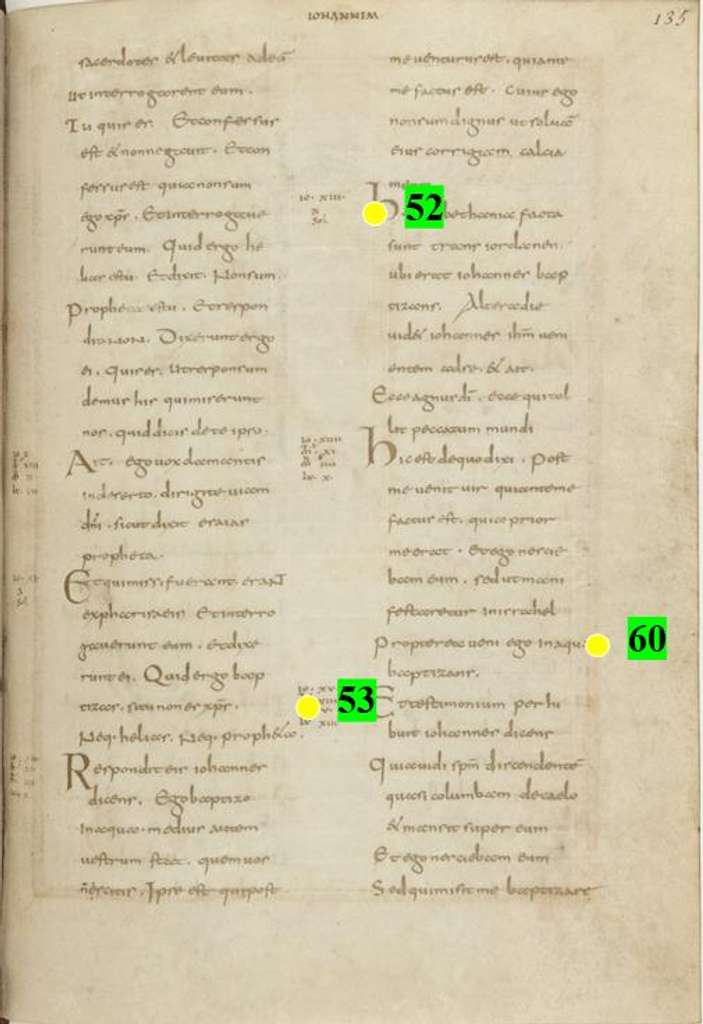 IOHANNEM
135
sacerdotes & leuitas ad eū
ut interrogarent eum.
Tu quis es. Et confessus
est & non negauit. Et con
fessus est quia non sum
ego xp̄s. Et interrogaue
runt eum. Quid ergo he
lias es tu. Et dicit. Non sum.
Propheta es tu. Et respon
dit NON. Dixerunt ergo
ei. Quis es. Ut responsum
demus his qui miserunt
nos. quid dicis de te ipso.
Ait. ego uox clamantis
in deserto. dirigite uiam
dn̄i. sicut dixit esaias
propheta.
Et qui missi fuerant. eraNT
ex pharisaeis Et interro
gauerunt eum. Et dixe
runt ei. Quid ergo bap
tizas. si tu non es xp̄s.
Neq. helias. Neq. proph&a.
Respondit eis iohannes
dicens. Ego baptizo
in aqua. medius autem
uestrum stat. quem uos
n̄ scitis. Ipse est qui post
me uenturus est. qui ante
me factus est. Cuius ego
non sum dignus ut soluā
eius corrigiam. calcia
io. xiii.
x
Sol.
52
h bethania facta
sunt trans iordanen.
ubi erat iohannes bap
tizans. Altera die
uid& iohannes ihm̄ ueni
entem ad se. & ait.
Ecce agnus dī. ecce qui tol
lit peccatum mundi
hic est de quo dixi. Post
me uenit uir qui ante me
factus est. quia prior
me erat. Et ego nescie
bam eum. sed ut mani
festaretur in israhel
Propterea ueni ego in aqua
60
baptizans.
53
Et testimonium perhi
buit iohannes dicens
Quia uidi sp̄m discendentē
quasi columbam de caelo
& mansit super eum
Et ego nesciebam eum
Sed qui misit me baptizare